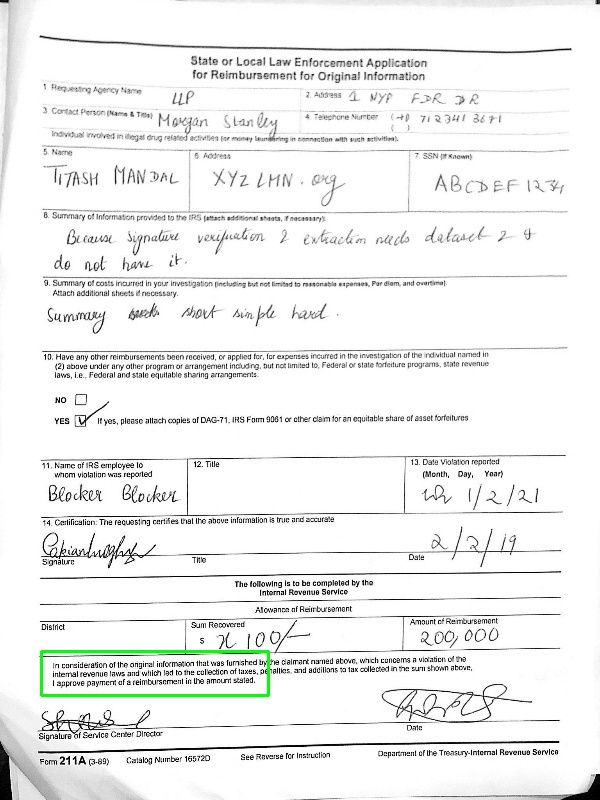 State or Local Law Enforcement Application
for Reimbursement for Original Information
1. Requesting Agency Name
LLP
2. Address 1 NYP FDR DR
3. Contact Person (Name & Title) Morgan Stanley
4. Telephone Number (+1) 712341 3671
( )
Individual involved in illegal drug related activities (or money laundering in connection with such activities).
5. Name
6. Address
7. SSN (If Known)
TITASH MANDAL
XYZLMN.org
ABCDEF 1234
8. Summary of Information provided to the IRS (attach additional sheets, if necessary):
Because signature verification 2 extraction needs dataset 2 &
do not have it.
9. Summary of costs incurred in your investigation (including but not limited to reasonable expenses, Per diem, and overtime).
Attach additional sheets if necessary.
Summary short simple hard.
10. Have any other reimbursements been received, or applied for, for expenses incurred in the investigation of the individual named in
(2) above under any other program or arrangement including, but not limited to, Federal or state forfeiture programs, state revenue
laws, i.e., Federal and state equitable sharing arrangements.
NO
YES If yes, please attach copies of DAG-71, IRS Form 9061 or other claim for an equitable share of asset forfeitures
11. Name of IRS employee to
whom violation was reported
12. Title
13. Date Violation reported
(Month, Day, Year)
Blocker Blocker
1/2/21
14. Certification: The requesting certifies that the above information is true and accurate
2/2/19
Signature
Title
Date
The following is to be completed by the
Internal Revenue Service
Allowance of Reimbursement
District
Sum Recovered
Amount of Reimbursement
$ 100/-
200,000
In consideration of the original information that was furnished by the claimant named above, which concerns a violation of the
internal revenue laws and which led to the collection of taxes, penalties, and additions to tax collected in the sum shown above,
I approve payment of a reimbursement in the amount stated.
Signature of Service Center Director
Date
Form 211A (3-89)
Catalog Number 16572D
See Reverse for Instruction
Department of the Treasury-Internal Revenue Service